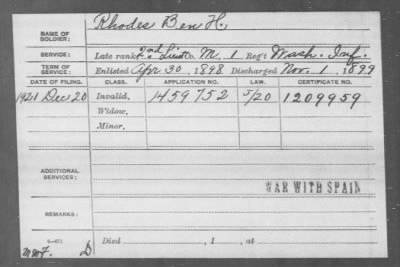 NAME OF SOLDIER: Rhodes Ben H.
SERVICE: Late rank 2nd Lieut Co. M, 1 Reg't Wash. Inf.
TERM OF SERVICE: Enlisted Apr 30, 1898 Discharged Nov. 1, 1899
DATE OF FILING. CLASS. APPLICATION NO. CERTIFICATE NO.
1921 Dec 20 Invalid, 1459752 5/20 1209959
Widow,
Minor,
ADDITIONAL SERVICES:
WAR WITH SPAIN
REMARKS:
Died , 1 , at